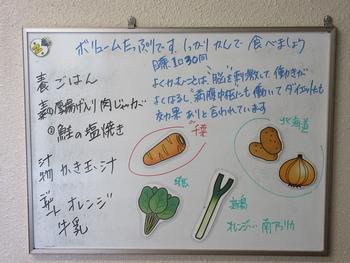 ボリュームたっぷりです。しっかりかんで食べましょう
目標1口30回
よくかむことは"脳"を刺激して働きが
よくなるし、満腹中枢にも働いてダイエットにも
効果ありと言われています
ごはん
厚揚げ入り肉じゃが
鮭の塩焼き
汁物 かき玉汁
デザート オレンジ
牛乳
千葉
北海道
オレンジ… 南アフリカ